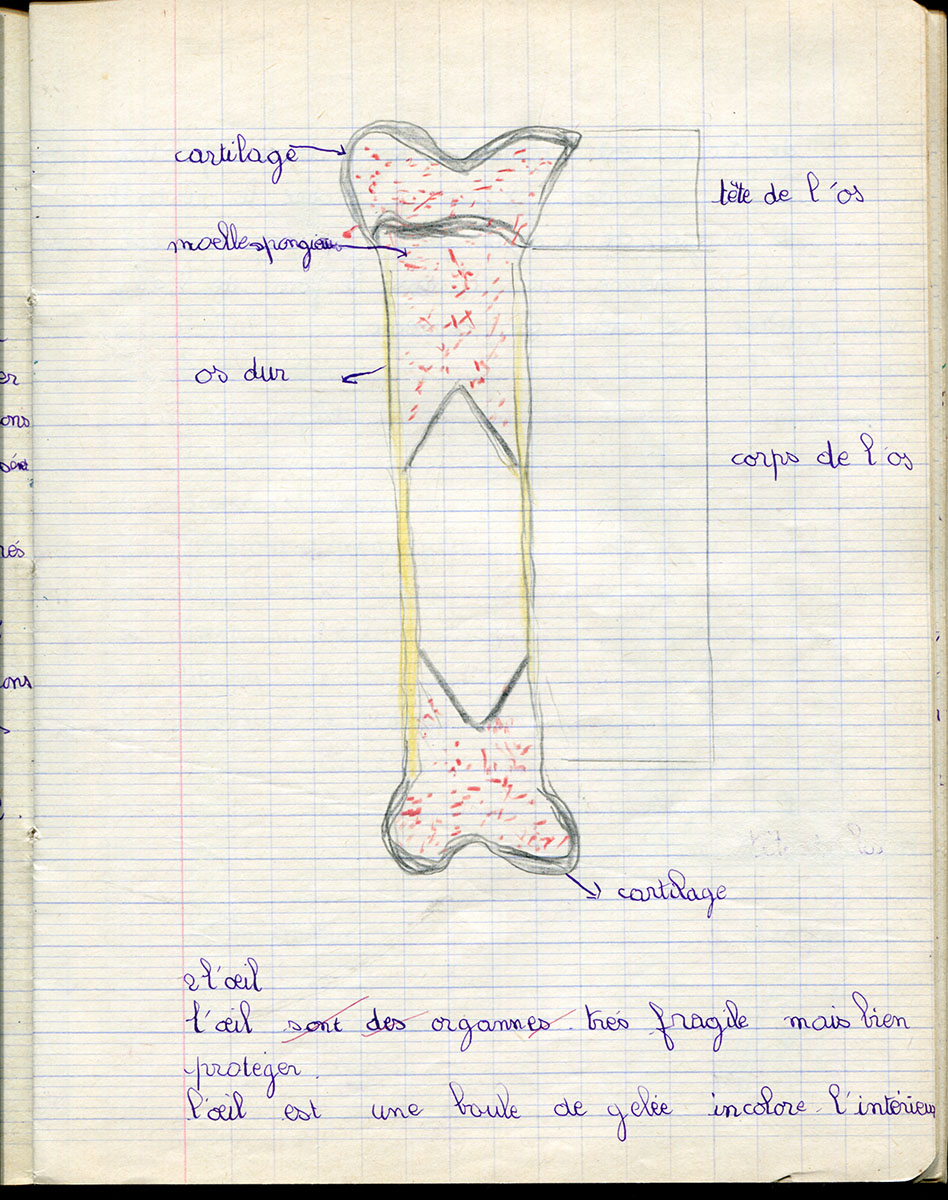 cartilage
tête de l'os
moelle spongieuse
os dur
corps de l'os
cartilage
2 l'œil
l'œil sont des organnes trés fragile mais bien
protéger.
l'œil est une boule de gelée incolore l'intérieur
er
ons
rés
ons